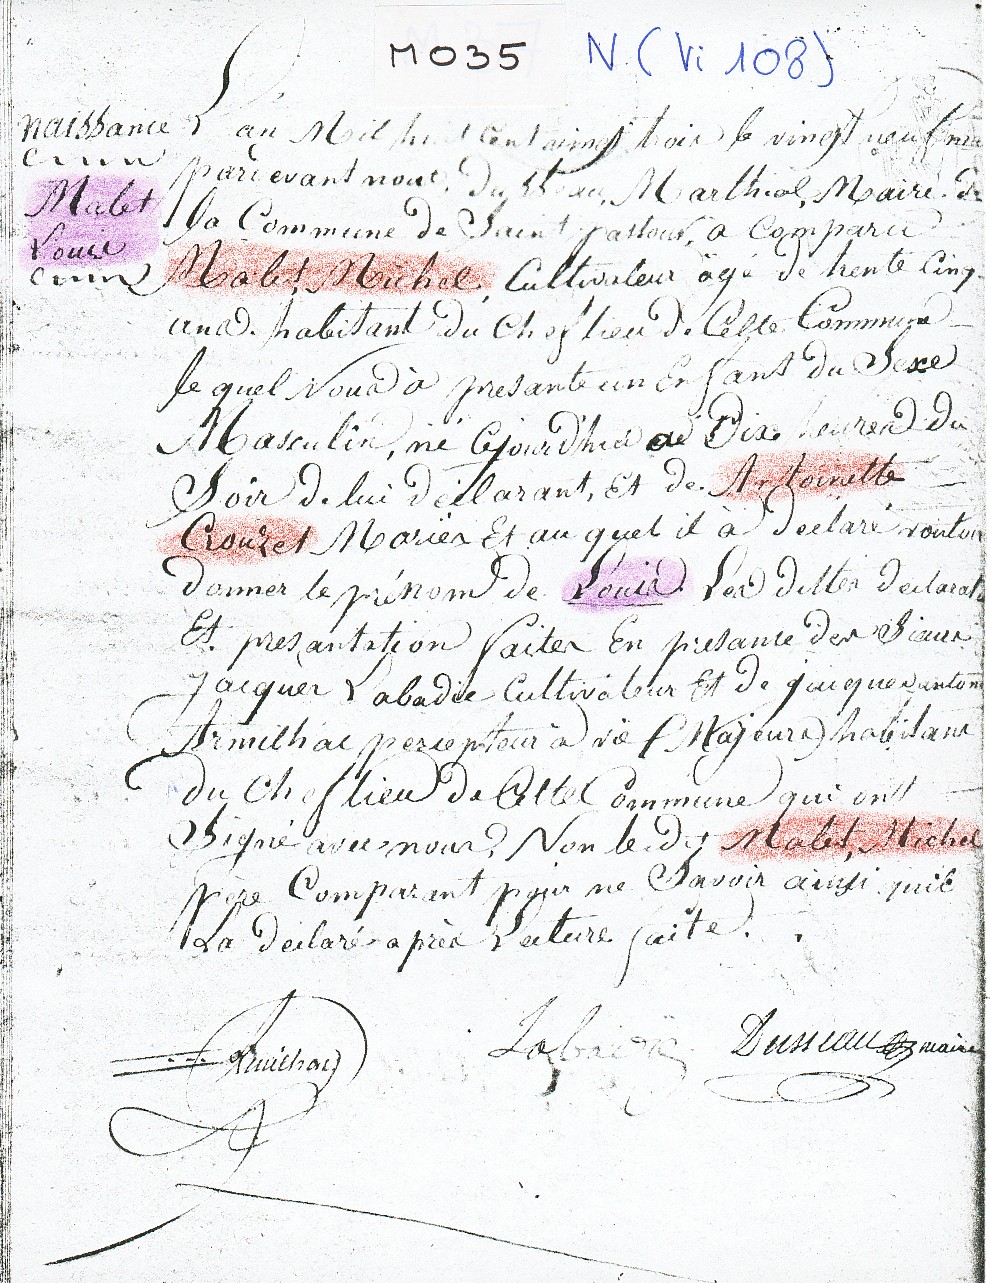 M035 N (Vi 108)
naissance
Malet
Louis
L'an Mil huit Cent vingt trois le vingt neuf mai
pardevant nous, Dusseau, Marthial, Maire de
la Commune de Saint pastour, a Comparu
Malet Michel, Cultivateur âgé de trente Cinq
ans. habitant du Cheflieu de Cette Commune
le quel Nous à presanté un Enfant du Sexe
Masculin, né Cejourdhui à Dix heures du
Soir de lui déclarant, Et de Antoinette
Crouzet Mariés Et au quel il à declaré vouloir
donner le prénom de Louis. Les dittes declarat
Et presantation faites En presance des Sieurs
Jacques Labadie Cultivateur Et de jacques antoine
Armilhac percepteur à vie (Majeurs) habitans
du Cheflieu de Cette Commune qui ont
Signé avec nous, Non ledit Malet, Michel
père Comparant pour ne Savoir ainsi quil
La declaré après Lecture faite.
Armilhac Labadie Dusseau maire